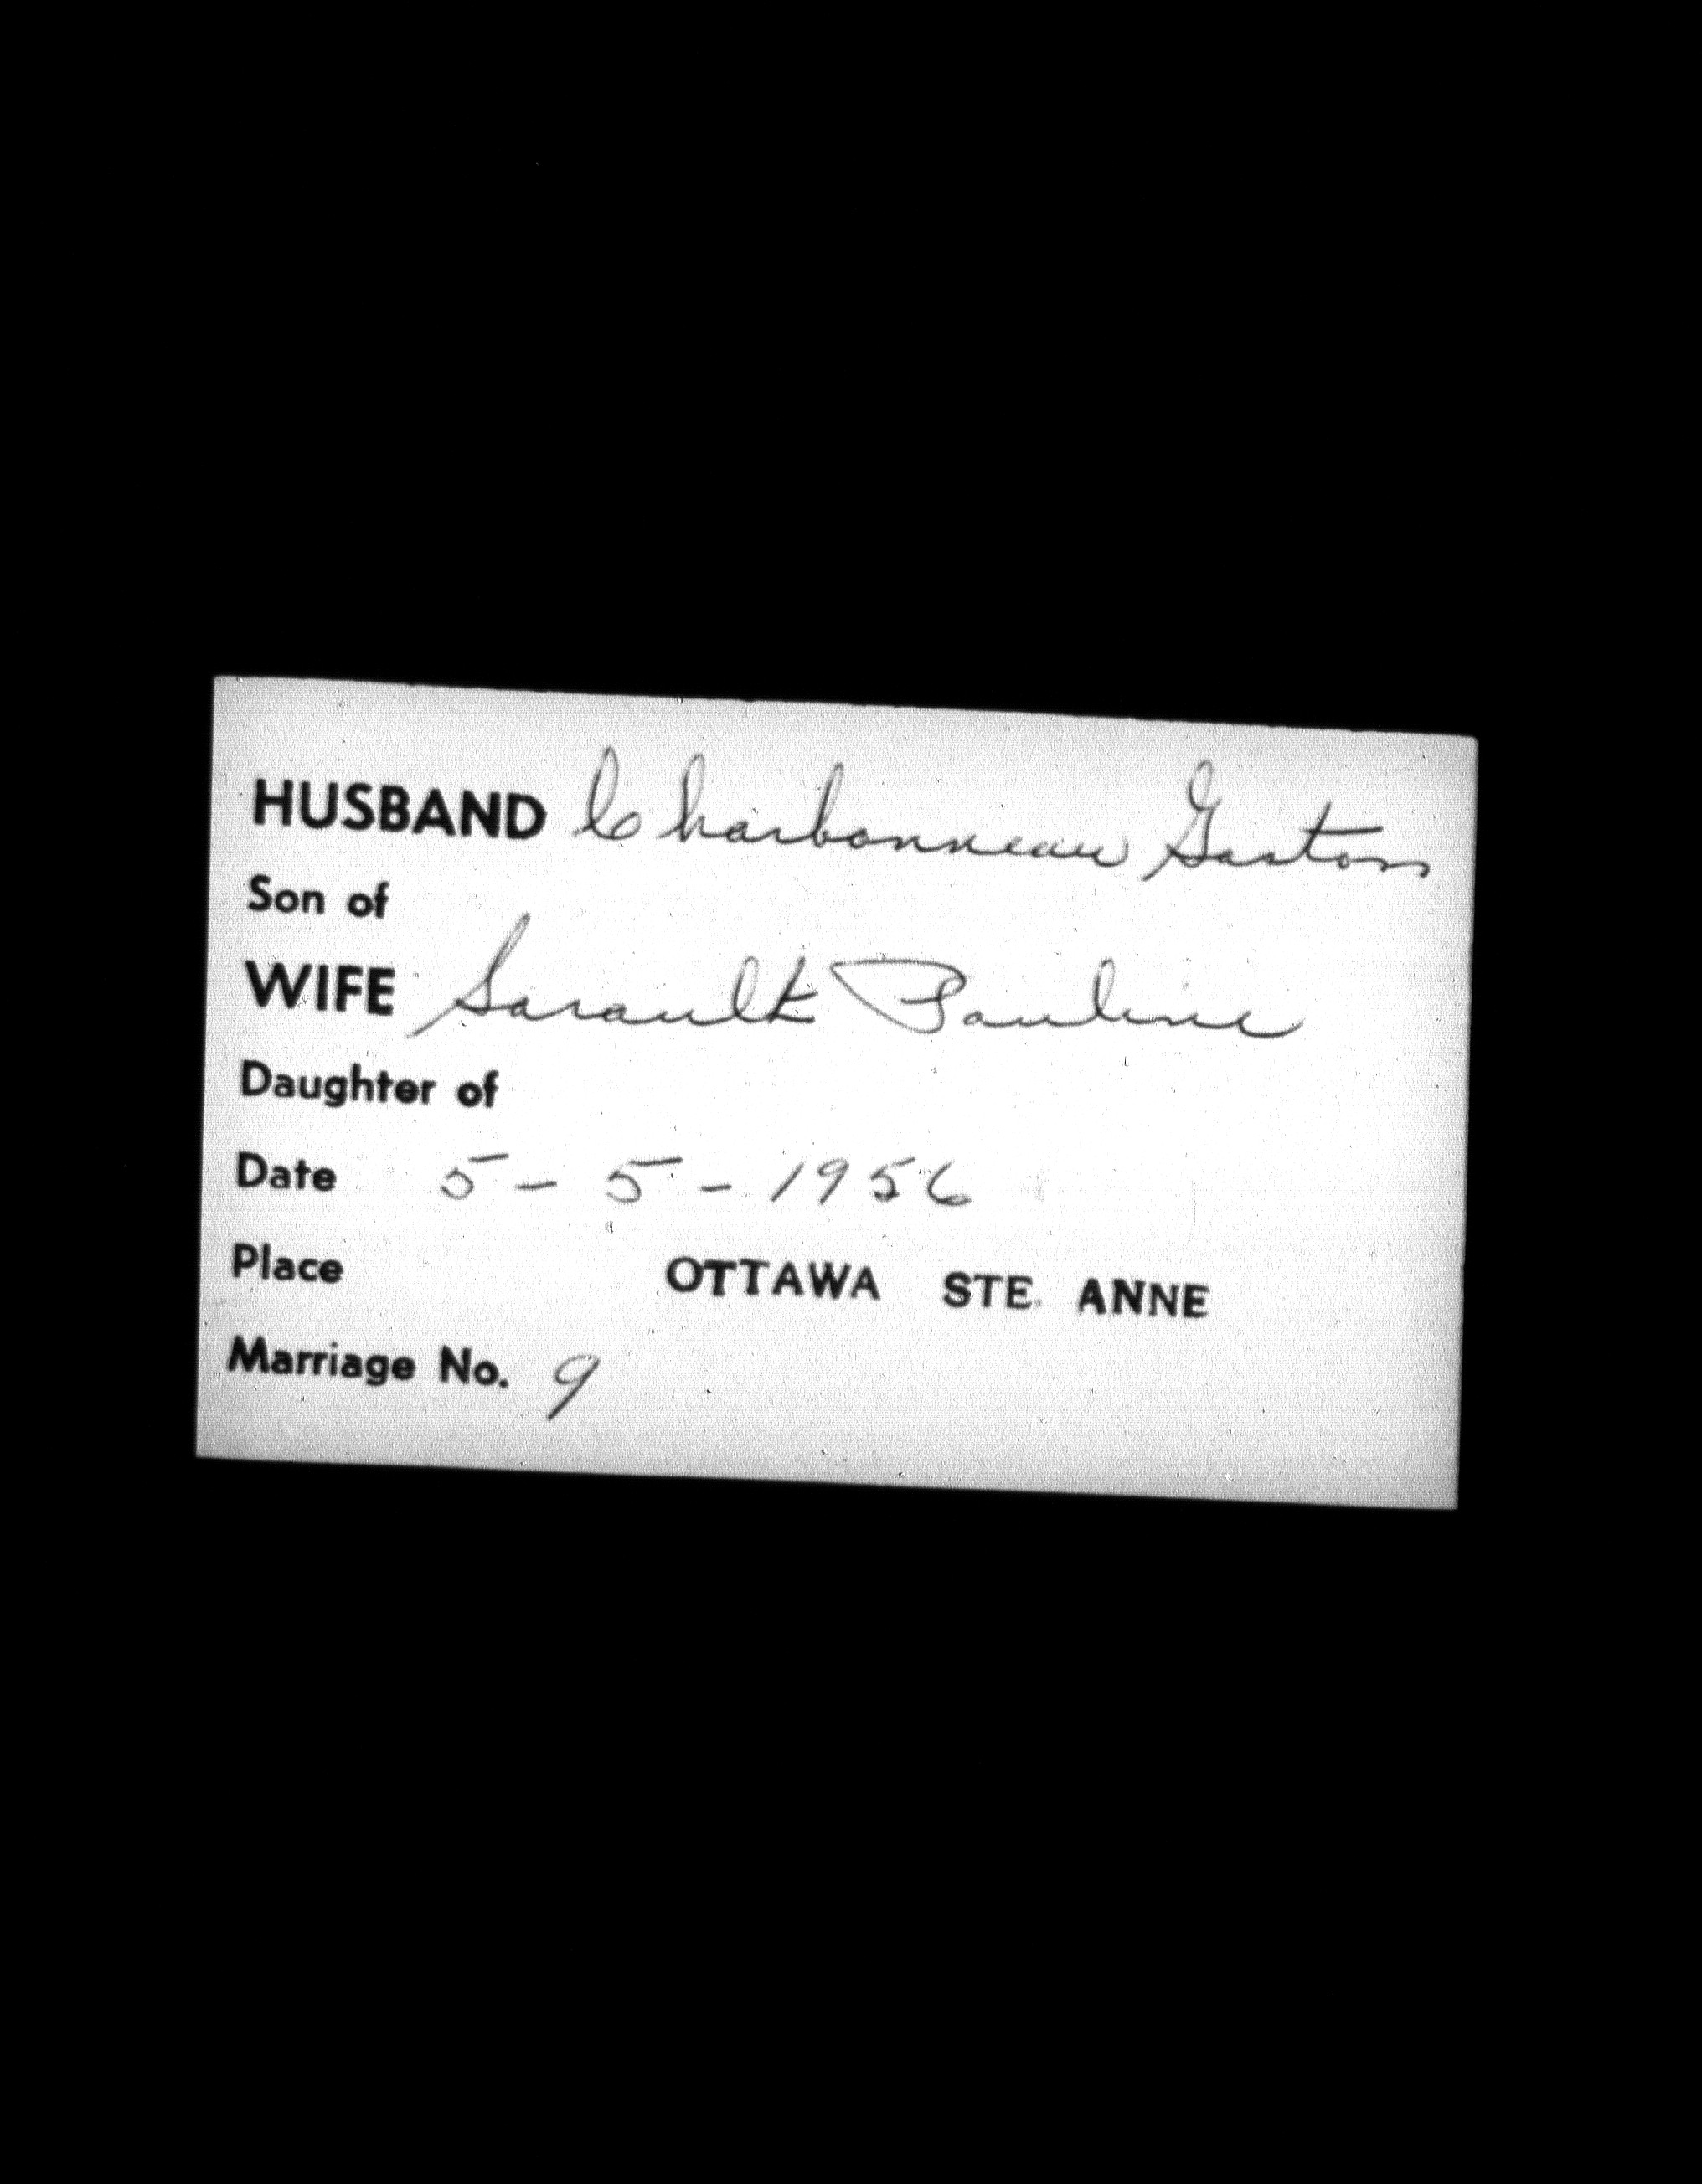 HUSBAND Charbonneau Gaston
Son of
WIFE Sarault Pauline
Daughter of
Date 5 - 5 - 1956
Place OTTAWA STE. ANNE
Marriage No. 9